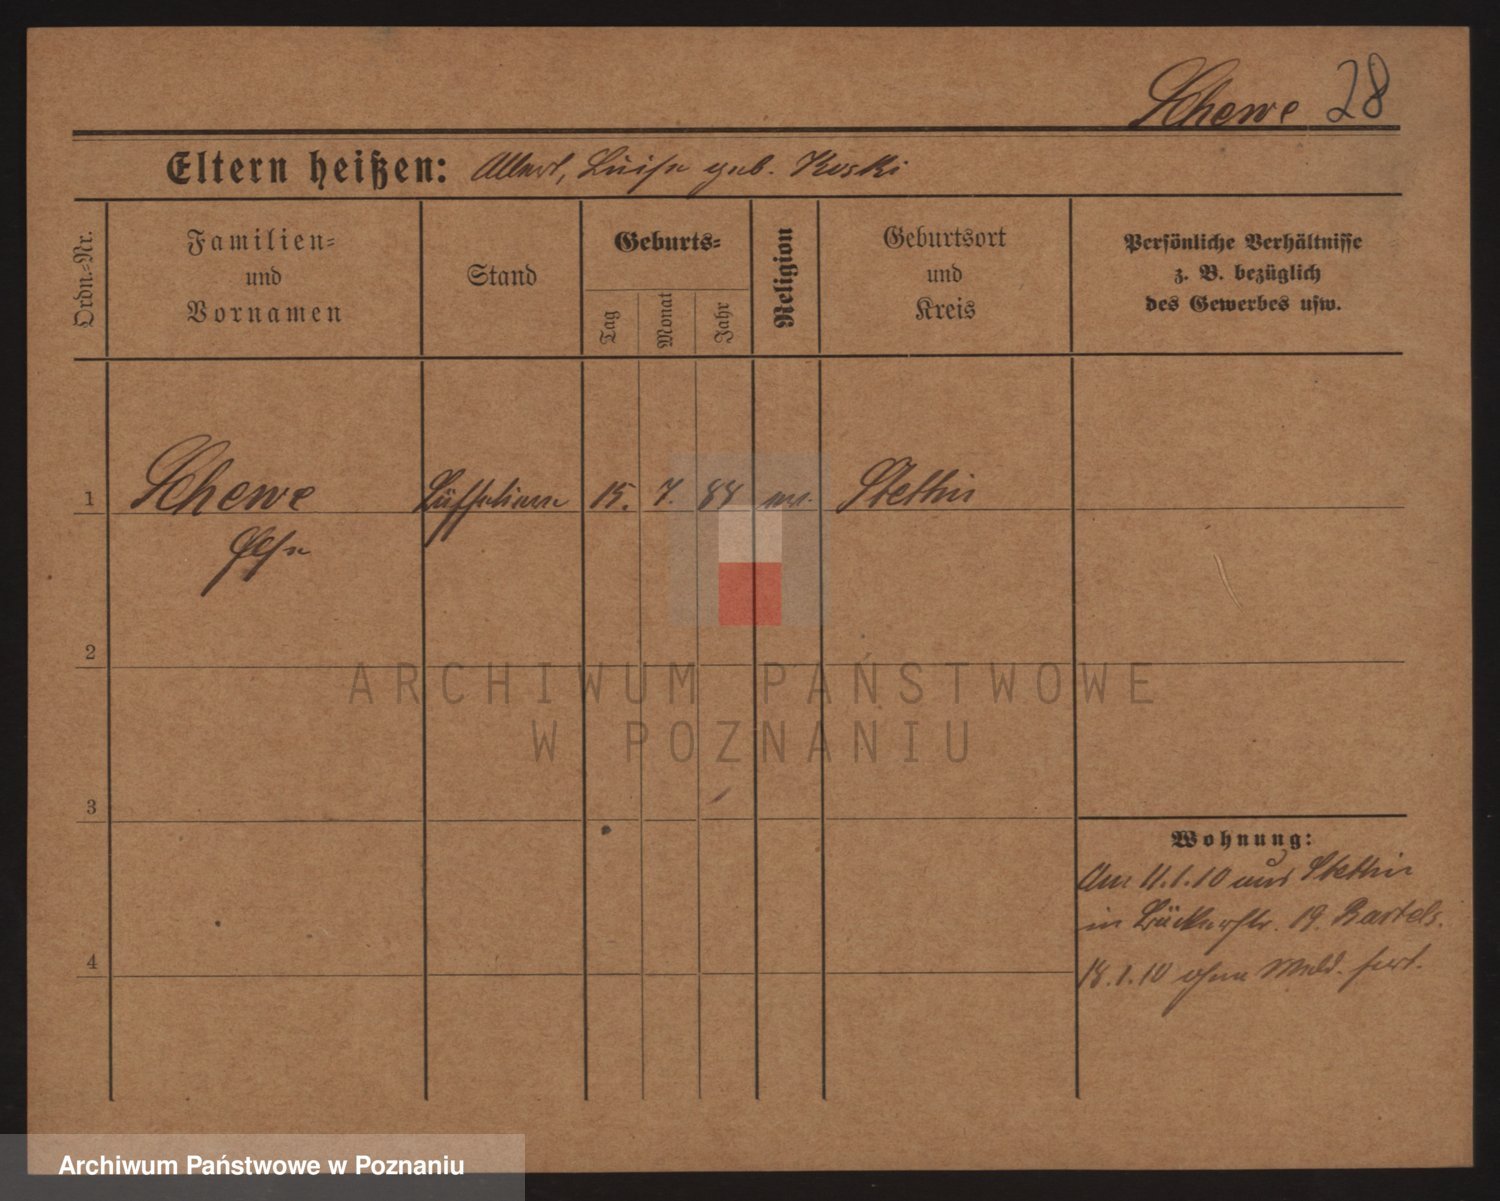 Schewe 28
Eltern heißen: Albert, Luise geb. Koski
Ordn.-Nr.
Familien-
und
Vornamen
Stand
Geburts-
Tag
Monat
Jahr
Religion
Geburtsort
und
Kreis
Persönliche Verhältnisse
z. B. bezüglich
des Gewerbes usw.
1 Schewe 15. 7. 88 Stettin
Else
2
ARCHIWUM PAŃSTWOWE
W POZNANIU
3
Wohnung:
Am 11.1.10 aus Stettin
in Bäckerstr. 19. Bartels.
4
18.1.10 ohne Meld. fort.
Archiwum Państwowe w Poznaniu